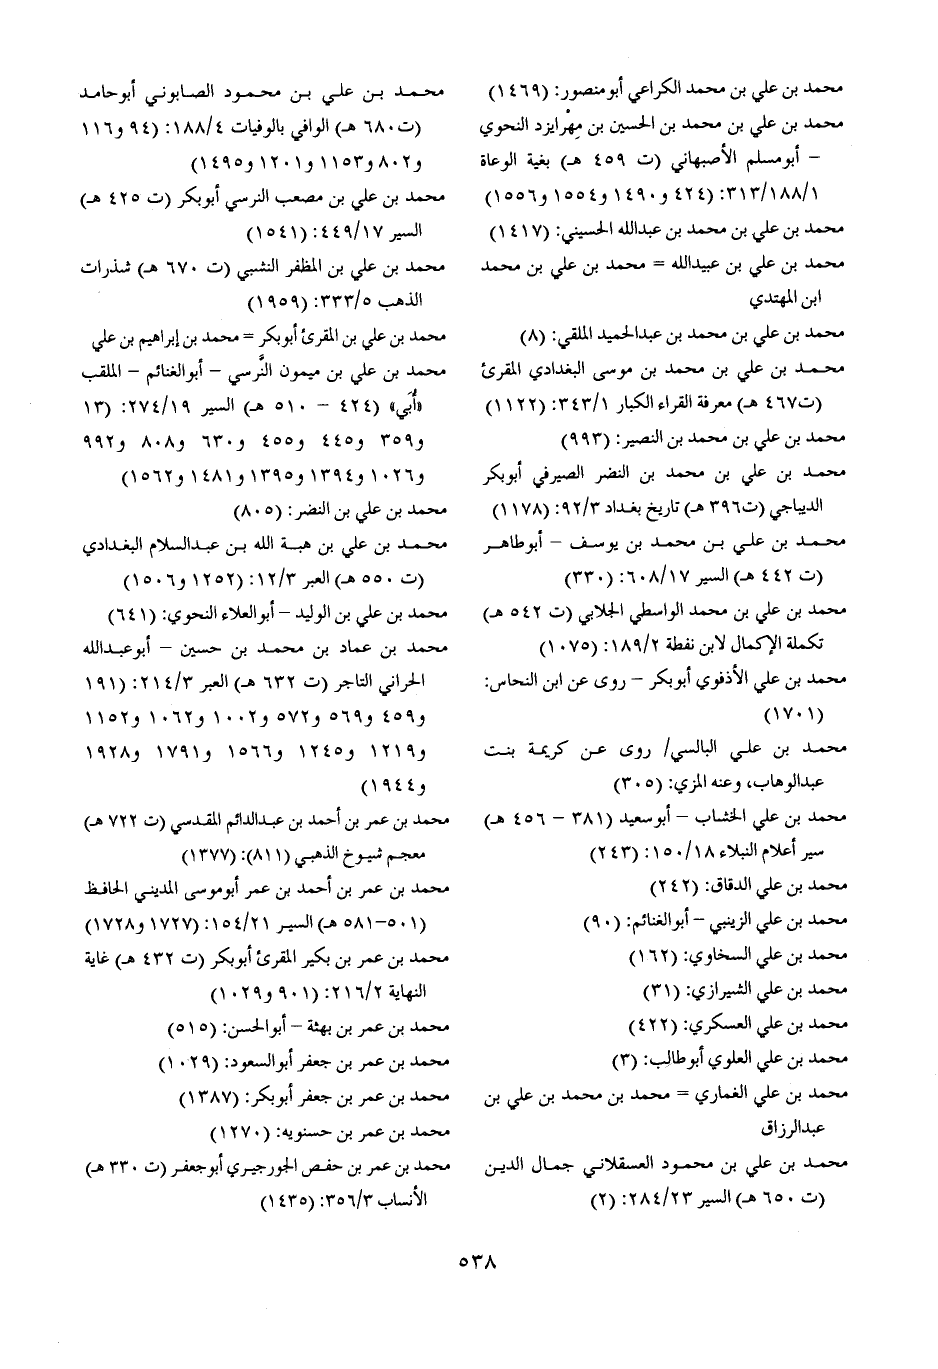 محمد بن علي بن محمد الكراعي أبومنصور: (١٤٦٩)
محمد بن علي بن محمد بن الحسين بن مِهْرايزد النحوي
– أبومسلم الأصبهاني (ت ٤٥٩ هـ) بغية الوعاة
١/٣١٣/١٨٨: (٤٢٤ و١٤٩٠ و١٥٥٤ و١٥٥٦)
محمد بن علي بن محمد بن عبدالله الحسيني: (١٤١٧)
محمد بن علي بن عبيدالله = محمد بن علي بن محمد
ابن المهتدي
محمد بن علي بن محمد بن عبدالحميد الملقي: (٨)
محمد بن علي بن محمد بن موسى البغدادي المقرئ
(ت٤٦٧ هـ) معرفة القراء الكبار ٣٤٣/١: (١١٢٢)
محمد بن علي بن محمد بن النصير: (٩٩٣)
محمد بن علي بن محمد بن النضر الصيرفي أبوبكر
الديباجي (ت٣٩٦ هـ) تاريخ بغداد ٩٢/٣: (١١٧٨)
محمد بن علي بن محمد بن يوسف – أبوطاهر
(ت ٤٤٢ هـ) السير ٦٠٨/١٧: (٣٣٠)
محمد بن علي بن محمد الواسطي الجلابي (ت ٥٤٢ هـ)
تكملة الإكمال لابن نفطة ١٨٩/٢: (١٠٧٥)
محمد بن علي الأذفوي أبوبكر – روى عن ابن النحاس:
(١٧٠١)
محمد بن علي البالسي/ روى عن كريمة بنت
عبدالوهاب، وعنه المزي: (٣٠٥)
محمد بن علي الخشاب – أبوسعيد (٣٨١ – ٤٥٦ هـ)
سير أعلام النبلاء ١٥٠/١٨: (٢٤٣)
محمد بن علي الدقاق: (٢٤٢)
محمد بن علي الزينبي – أبوالغنائم: (٩٠)
محمد بن علي السخاوي: (١٦٢)
محمد بن علي الشيرازي: (٣١)
محمد بن علي العسكري: (٤٢٢)
محمد بن علي العلوي أبوطالب: (٣)
محمد بن علي الغماري = محمد بن محمد بن علي بن
عبدالرزاق
محمد بن علي بن محمود العسقلاني جمال الدين
(ت ٦٥٠ هـ) السير ٢٨٤/٢٣: (٢)
محمد بن علي بن محمود الصابوني أبوحامد
(ت٦٨٠ هـ) الوافي بالوفيات ١٨٨/٤: (٩٤ و١١٦
و٨٠٢ و١١٥٣ و١٢٠١ و١٤٩٥)
محمد بن علي بن مصعب النرسي أبوبكر (ت ٤٢٥ هـ)
السير ٤٤٩/١٧: (١٥٤١)
محمد بن علي بن المظفر النشبي (ت ٦٧٠ هـ) شذرات
الذهب ٣٣٣/٥: (١٩٥٩)
محمد بن علي بن المقرئ أبوبكر = محمد بن إبراهيم بن علي
محمد بن علي بن ميمون النَّرسي – أبوالغنائم – الملقب
«أُبَي» (٤٢٤ – ٥١٠ هـ) السير ٢٧٤/١٩: (١٣
و٣٥٩ و٤٤٥ و٤٥٥ و٦٣٠ و٨٠٨ و٩٩٢
و١٠٢٦ و١٣٩٤ و١٣٩٥ و١٤٨١ و١٥٦٢)
محمد بن علي بن النضر: (٨٠٥)
محمد بن علي بن هبة الله بن عبدالسلام البغدادي
(ت ٥٥٠ هـ) العبر ١٢/٣: (١٢٥٢ و١٥٠٦)
محمد بن علي بن الوليد – أبوالعلاء النحوي: (٦٤١)
محمد بن عماد بن محمد بن حسين – أبوعبدالله
الحراني التاجر (ت ٦٣٢ هـ) العبر ٢١٤/٣: (١٩١
و٤٥٩ و٥٦٩ و٥٧٢ و١٠٠٢ و١٠٦٢ و١١٥٢
و١٢١٩ و١٢٤٥ و١٥٦٦ و١٧٩١ و١٩٢٨
و١٩٤٤)
محمد بن عمر بن أحمد بن عبدالدائم المقدسي (ت ٧٢٢ هـ)
معجم شيوخ الذهبي (٨١١): (١٣٧٧)
محمد بن عمر بن أحمد بن عمر أبوموسى المديني الحافظ
(٥٠١–٥٨١ هـ) السير ١٥٤/٢١: (١٧٢٧ و١٧٢٨)
محمد بن عمر بن بكير المقرئ أبوبكر (ت ٤٣٢ هـ) غاية
النهاية ٢١٦/٢: (٩٠١ و١٠٢٩)
محمد بن عمر بن بهثة – أبوالحسن: (٥١٥)
محمد بن عمر بن جعفر أبوالسعود: (١٠٢٩)
محمد بن عمر بن جعفر أبوبكر: (١٣٨٧)
محمد بن عمر بن حسنويه: (١٢٧٠)
محمد بن عمر بن حفص الجورجيري أبوجعفر (ت ٣٣٠ هـ)
الأنساب ٣٥٦/٣: (١٤٣٥)
٥٣٨